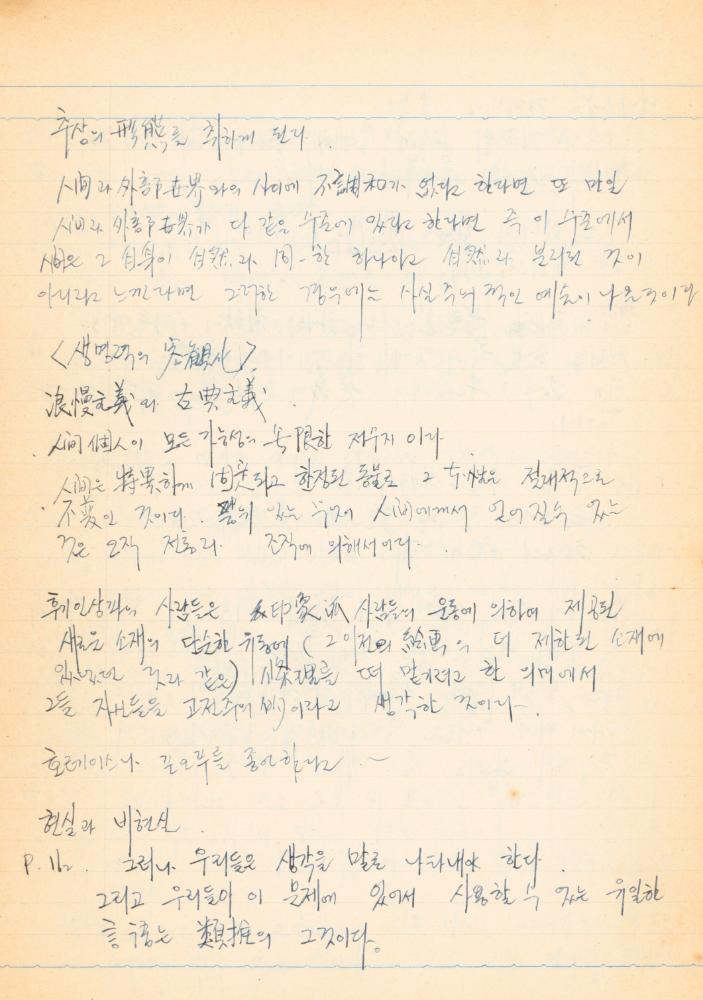 추상의 形態를 취하게 된다.
人間과 外部世界와의 사이에 不調和가 없다고 한다면 또 만일
人間과 外部世界가 다 같은 수준에 있다고 한다면 즉 이 수준에서
人間은 그 自身이 自然과 同一한 하나이고 自然과 분리된 것이
아니라고 느낀다면 그러한 경우에는 사실주의적인 예술이 나온것이다
<생명력의 客觀化>
浪慢主義와 古典主義.
人間個人이 모든 가능성의 무限한 저수지이다.
人間은 特異하게 固定되고 한정된 동물로 그 本性은 절대적으로
不変인 것이다. 있는 무엇이 人間에게서 얻어질수 있는
것은 오직 전통과 조직에 의해서이다.
후기인상파의 사람들은 印象派 사람들의 운동에 의하여 제공된
새로운 소재의 단순한 유동에 (그 이전의 絵画의 더 제한된 소재에
있었던 것과 같은) 條理를 떠 맡기려고 한 의미에서
그들 자신들을 고전주의 이라고 생각한 것이다.
호레이스나 를 좋아한다고.~
현실과 비현실.
P.112. 그러나 우리들은 생각을 말로 나타내야 한다.
그리고 우리들이 이 문제에 있어서 사용할 수 있는 유일한
言語는 類推의 그것이다.